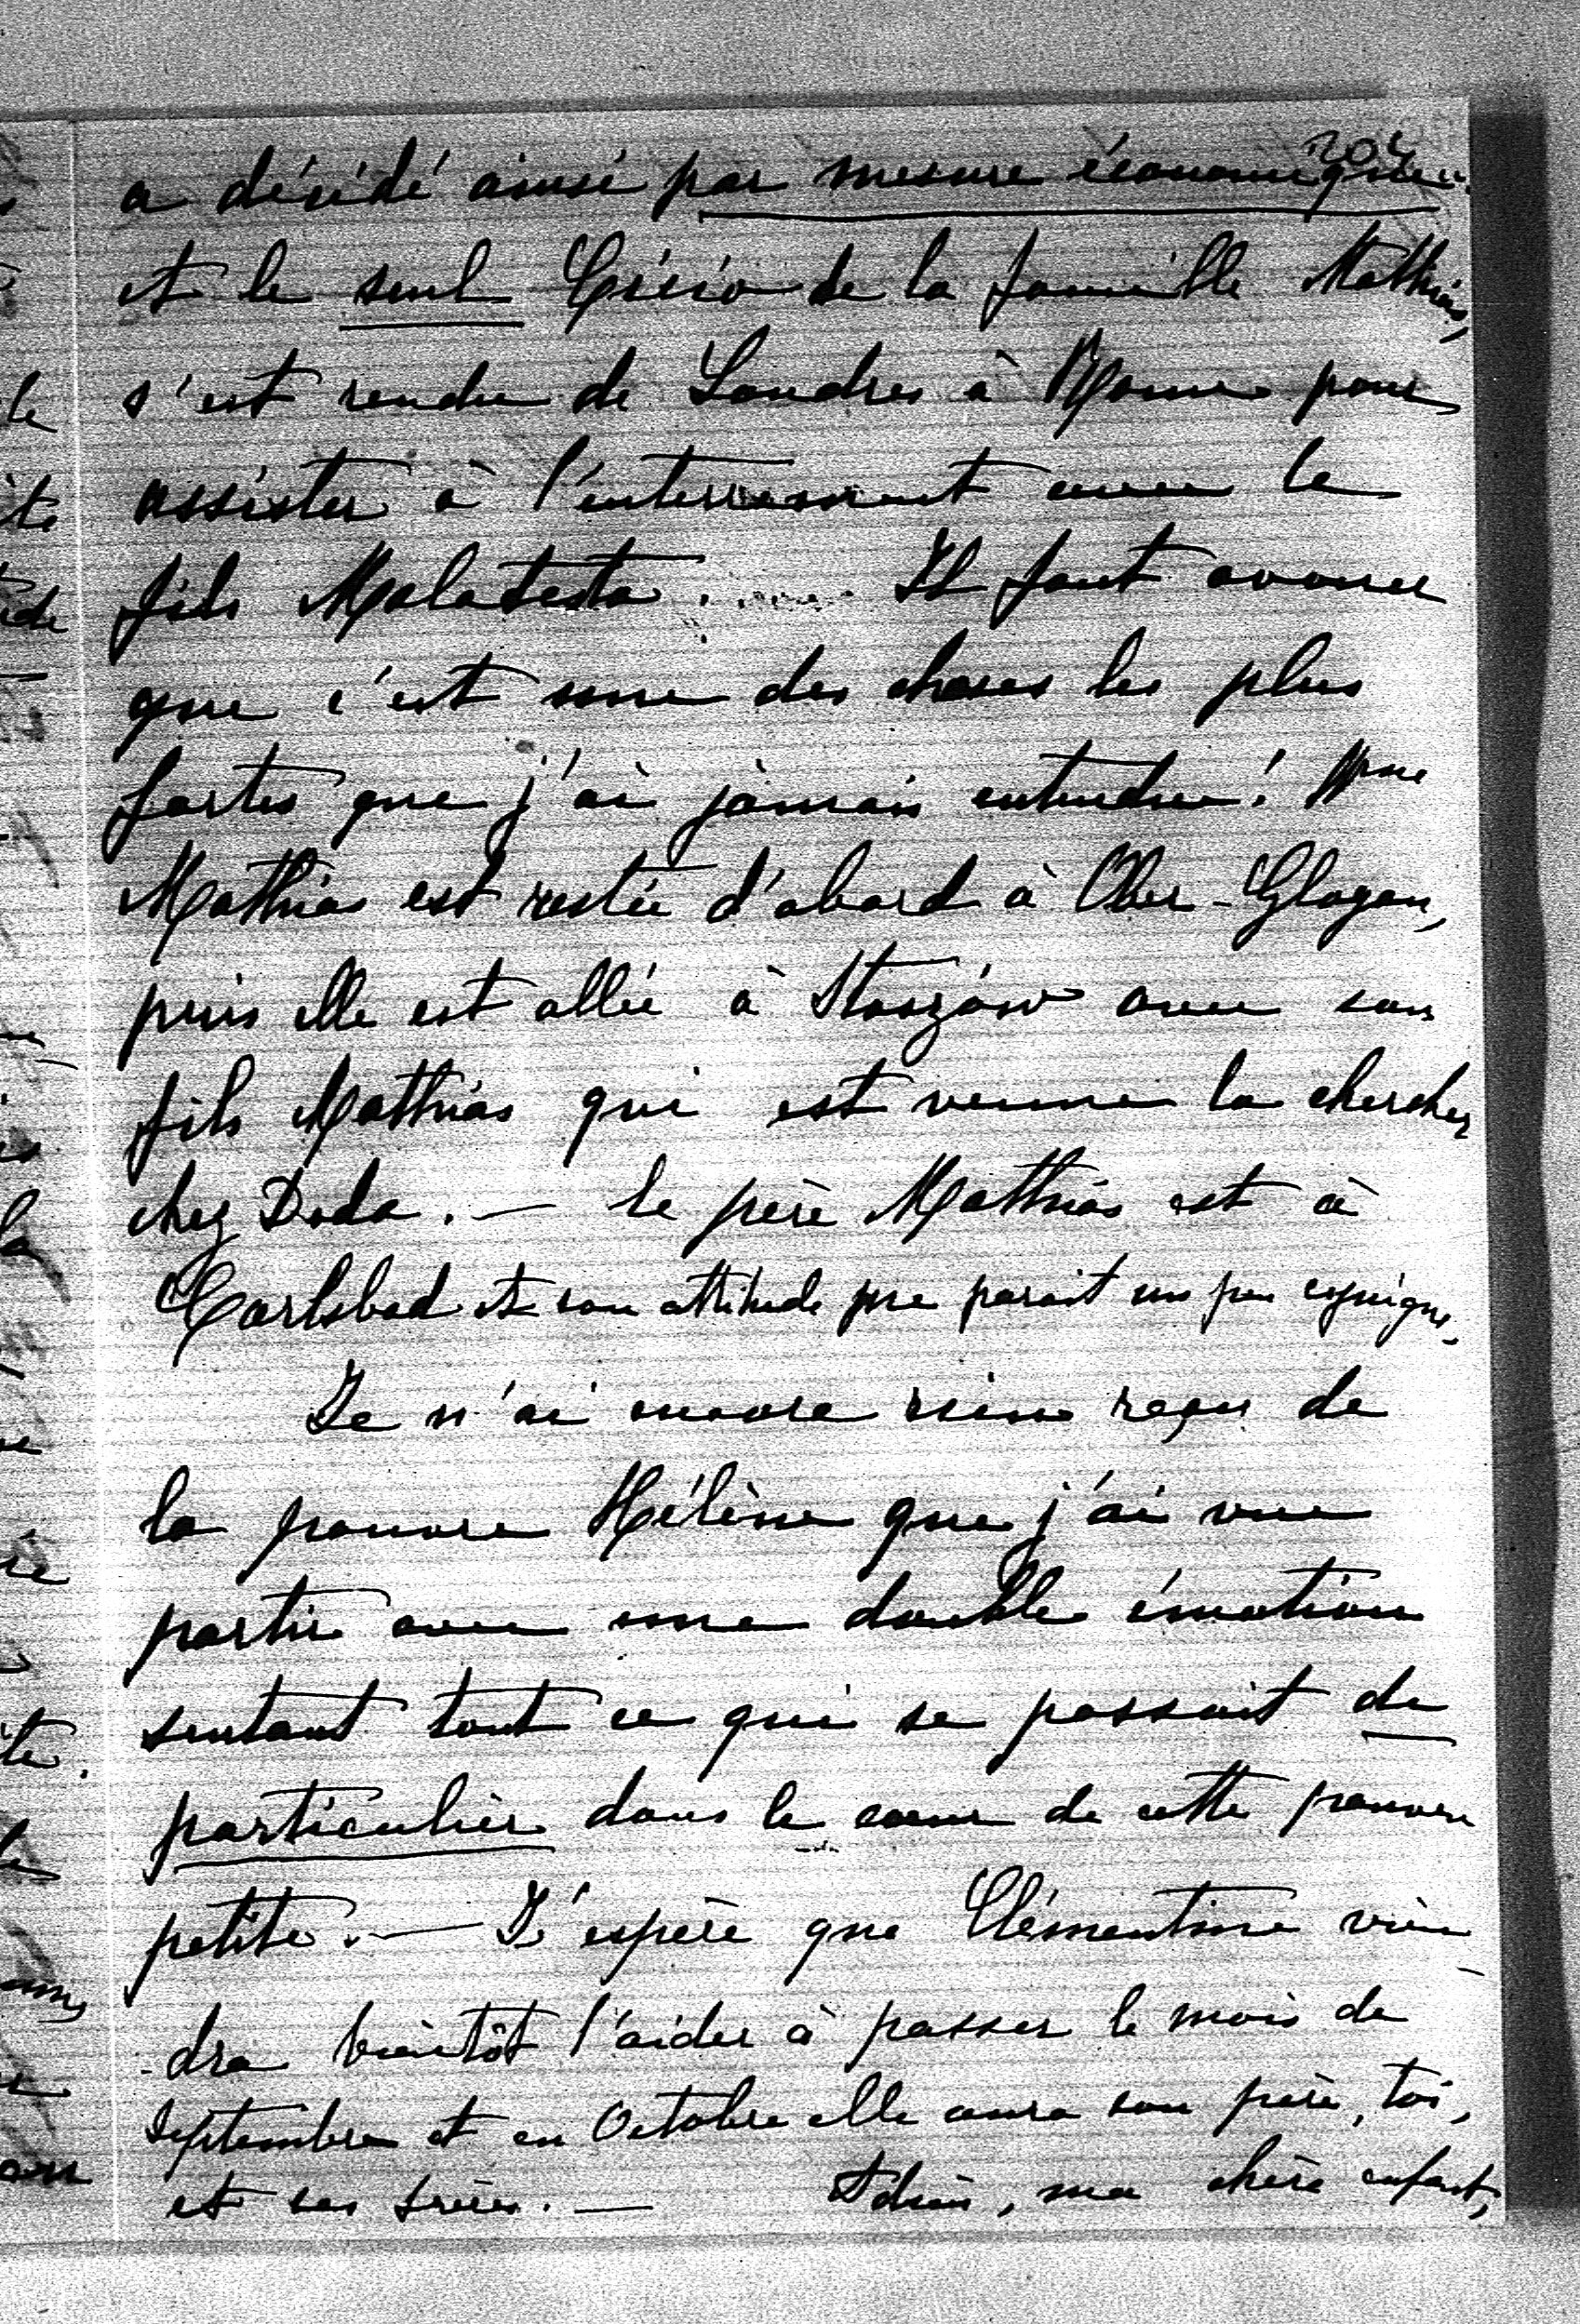 204
a décidé ainsi par mesure économique
et le seul Cicéro de la famille Mathias,
s'est rendu de Londres à Rome pour
assister à l'enterrement avec le
fils Malatesta. Il faut avouer
que c'est une des choses les plus
fortes que j'ai jamais entendues! Mme
Mathias est restée d'abord à Ober-Glogau,
puis elle est allée à Staszów avec son
fils Mathias qui est venu la chercher
chez Doda. — le père Mathias est à
Carlsbad et son attitude me parait un peu cynique.
Je n'ai encore rien reçu de
la pauvre Hélène que j'ai vue
partir avec une double émotion
sentant tout ce qui se passait de
particulier dans le cœur de cette pauvre
petite. — J'espère que Clémentine vien-
-dra bientôt l'aider à passer le mois de
Septembre et en Octobre elle aura son père, toi,
et ses frères. — Adieu, ma chère enfant,